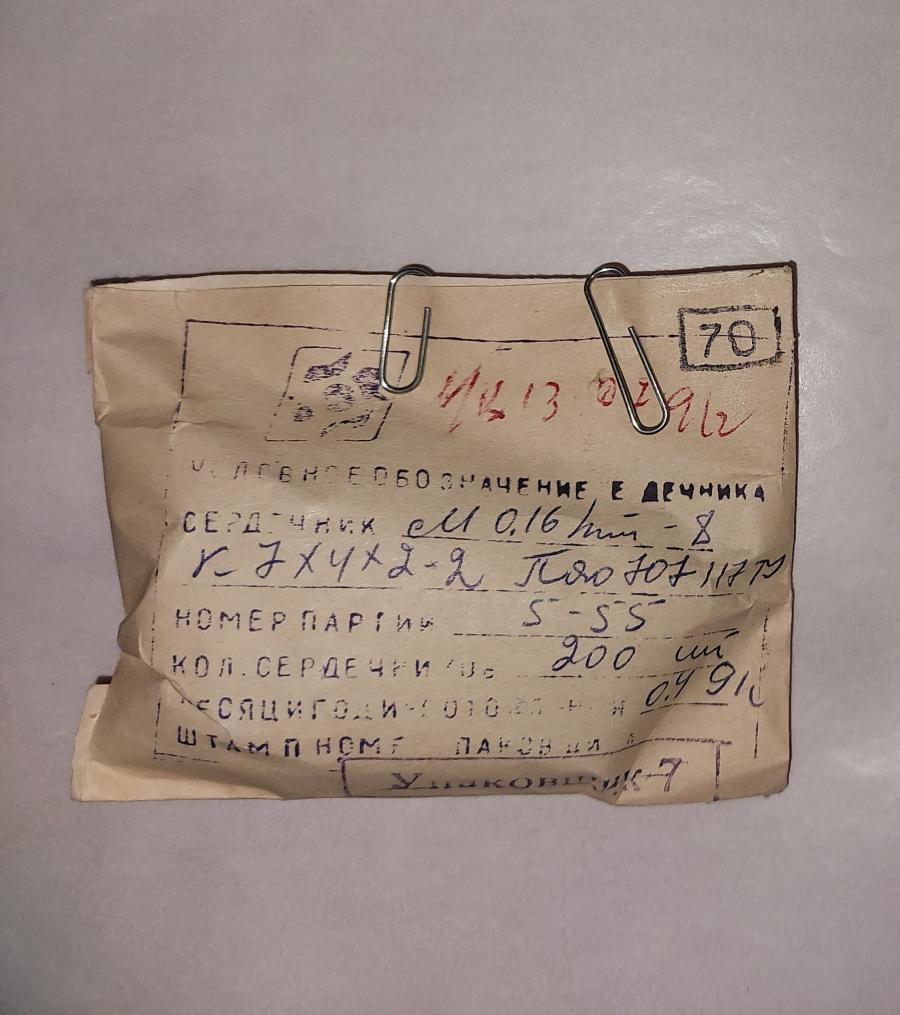 70
13 91г
УСЛОВНОЕ ОБОЗНАЧЕНИЕ СЕРДЕЧНИКА
СЕРДЕЧНИК М 0,16 - 8
К 7х4х2-2 Пяо 707 117 ТУ
НОМЕР ПАРТИИ 5-55
КОЛ. СЕРДЕЧНИКОВ 200 шт
МЕСЯЦ И ГОД ИЗГОТОВЛЕНИЯ 04 91г
ШТАМП НОМЕР УПАКОВЩИКА
Упаковщик-7